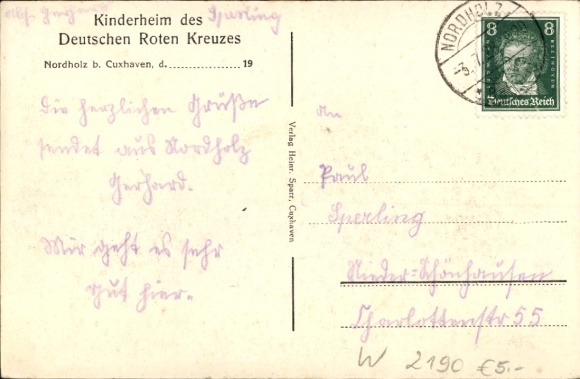 Sperling
Kinderheim des
Deutschen Roten Kreuzes
Nordholz b. Cuxhaven, d. 19
Die herzlichen Grüße
sendet aus Nordholz
Gerhard.
Mir geht es sehr
gut hier.
Verlag Heinr. Sparr, Cuxhaven
NORDHOLZ
8 8
BEETHOVEN
Deutsches Reich
An
Paul
Sperling
Nieder=Schönhausen
Charlottenstr 55
W 2190 €5.-